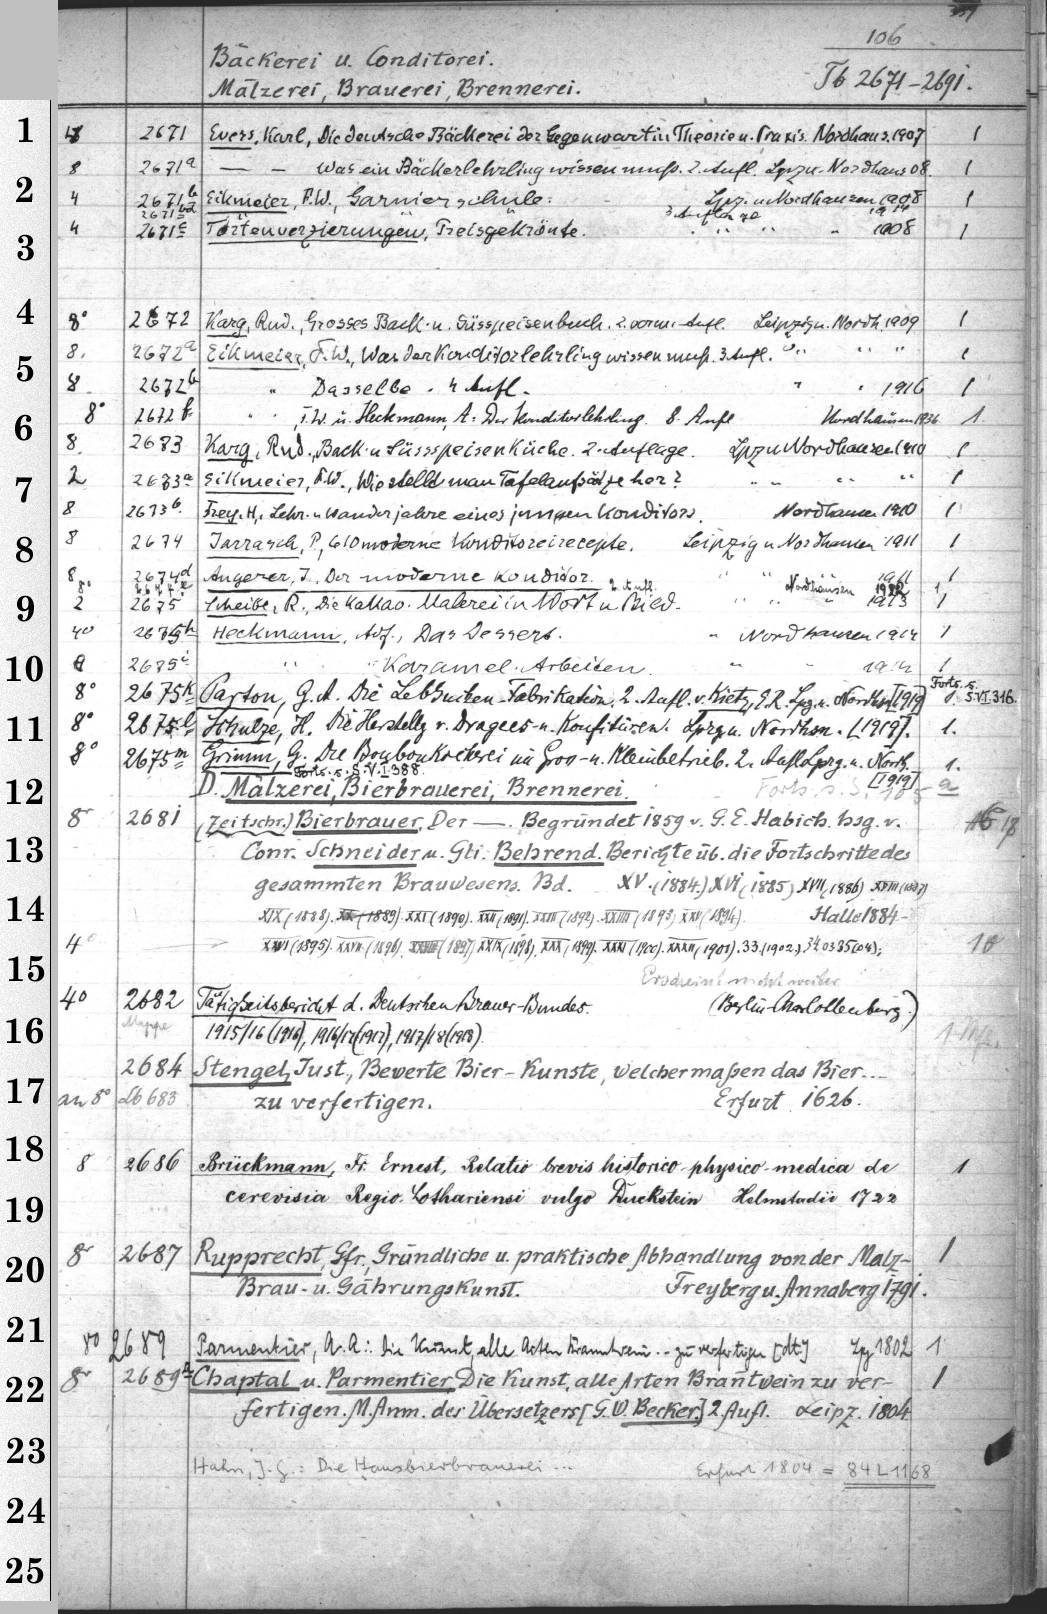 106
Bäckerei u. Conditorei.
Mälzerei, Brauerei, Brennerei. Tb 2671-2691.
1 2671 Evers, Karl, Die deutsche Bäckerei der Gegenwart in Theorie u. Praxis. Nordhaus. 1907 1
8 2671a — — Was ein Bäckerlehrling wissen muß. 2. Aufl. Lpz u. Nordhaus 08. 1
2 4 2671b Eikmeier, F.W., Garnierschule: Lpz. u. Nordhausen 1908 1
2671bd 3. Auflage 1914
3 4 2671c Tortenverzierungen, Preisgekrönte. " " " 1908 1
4 8° 2672 Karg, Rud., Grosses Back- u. Süsspeisenbuch. 2. verm. Aufl. Leipzig u. Nordh. 1909 1
5 8. 2672a Eikmeier, F.W., Was der Konditorlehrling wissen muß. 3. Aufl. " " " 1
8 2672b " Dasselbe. 4 Aufl. " " 1916 1
6 8° 2672b " " F.W. u. Heckmann, A: Der Konditorlehrling. 8. Aufl Nordhausen 1936 1.
8. 2683 Karg, Rud., Back- u Süssspeisenküche. 2. Auflage. Lpz u Nordhausen 1910 1
7 2 2673a Eikmeier, F.W., Wie stellt man Tafelaufsätze her? " " " " 1
8 2673b. Frey, H., Lehr- u Wanderjahre eines jungen Konditors. Nordhausen 1910 1
8 8 2674 Jarrasch, P, 610 moderne Konditoreirecepte. Leipzig u Nordhausen 1911 1
8. 2674d Angerer, J. Der moderne Konditor. " " 1911 1
8° 2. Aufl. Nordhausen 1922 1
9 2 2675 Scheibe, R., Die Kakao-Malerei in Wort u Bild. " " " 1913 1
4° 2675h Heckmann, Adf., Das Dessert. " Nordhausen 1914 1
10 2675i " " Karamel-Arbeiten " " 1
8° 2675k Parton, G. A. Die Lebkuchen-Fabrikation. 2. Aufl. v. Kietz, E.R. Lpz. u. Nordhsn [1919] 1. Forts. s. S. VI. 316.
11 8° 2675l Schulze, H. Die Herstellg v. Dragees- u. Konfitüren. Lpzg u. Nordhsn. [1919]. 1.
8° 2675m Grimm, G. Die Bonbonkocherei im Gros- u. Kleinbetrieb. 2. Aufl Lpzg. u. Nordh. [1919] 1.
Forts. s. S. VI. 388.
12 D. Mälzerei, Bierbrauerei, Brennerei. Forts. s. S. a
8° 2681 (Zeitschr.) Bierbrauer, Der —. Begründet 1859 v. G. E. Habich. hsg. v. 18
13 Conr. Schneider u. Gli. Behrend. Berichte üb. die Fortschritte des
gesammten Brauwesens. Bd. XV. (1884.) XVI (1885) XVII (1886) XVIII (1887)
14 XIX (1888). XX (1889). XXI (1890). XXII (1891). XXIII (1892). XXIIII (1893) XXV (1894). Halle 1884-
4° XXVI (1895). XXVII (1896). XXVIII (1897) XXIX (1898), XXX (1899). XXXI (1900). XXXII (1901). 33. (1902.) 34 03 35 (04); 10
15 Erscheint nicht weiter
4° 2682 Tätigkeitsbericht d. Deutschen Brauer-Bundes. (Berlin-Charlottenburg.)
16 Mappe 1915/16 (1916), 1916/17 (1917), 1917/18 (1918).
2684 Stengel, Just., Bewerte Bier-Kunste, welchermaßen das Bier...
17 an 8° 683 zu verfertigen. Erfurt 1626.
18 8 2686 Brückmann, Fr. Ernest, Relatio brevis historico-physico-medica de 1
19 cerevisia Regio-Lothariensi vulgo Duckstein Helmstadii 1722
20 8° 2687 Rupprecht, Gfr., Gründliche u. praktische Abhandlung von der Malz- 1
Brau- u. Gährungskunst. Freyberg u. Annaberg 1791.
21 8° 2689 Parmentier, A. A.: Die Kunst, alle Arten Branntwein .. zu verfertigen [dt.] Lpz 1802 1
22 8° 2689a Chaptal u. Parmentier, Die Kunst, alle Arten Brantwein zu ver- 1
fertigen. M. Anm. des Übersetzers [G. W. Becker.] 2. Aufl. Leipz. 1804
23 Hahn, J. G.: Die Hausbierbrauerei ... Erfurt 1804 = 84 L 1168
24
25